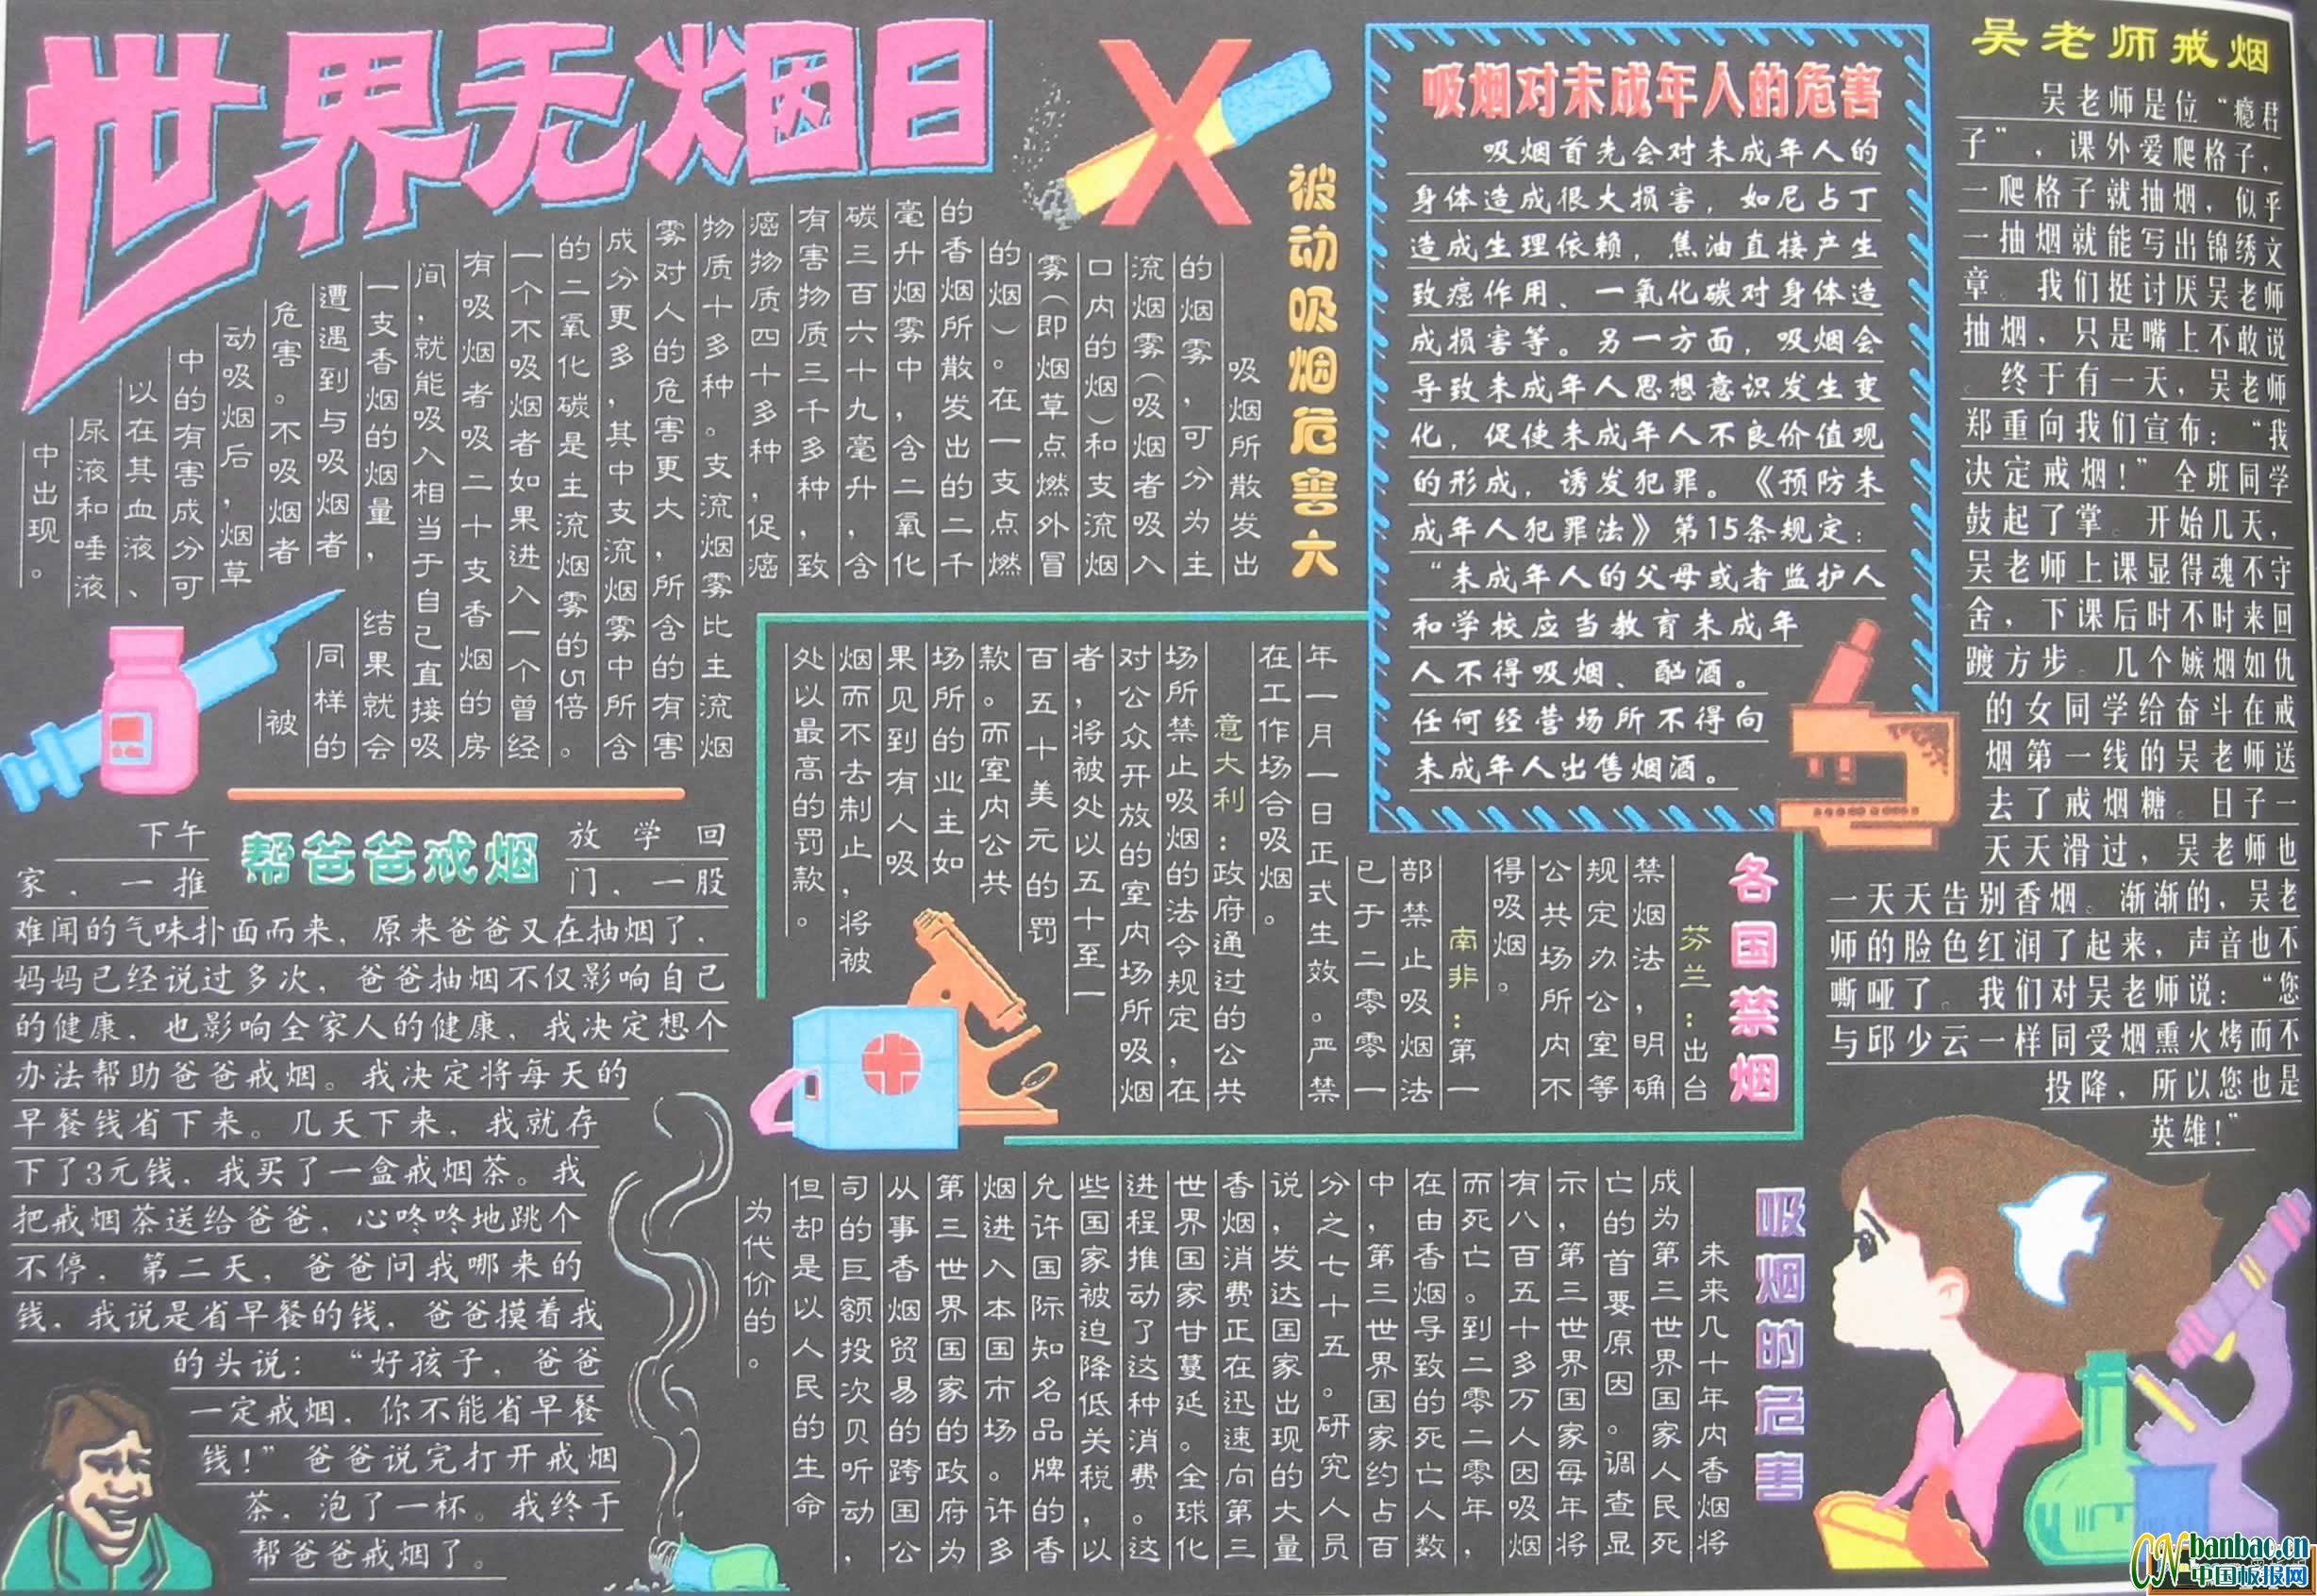 世界无烟日
被动吸烟危害大
吸烟所散发出
的烟雾，可分为主
流烟雾（吸烟者吸入
口内的烟）和支流烟
雾（即烟草点燃外冒
的烟）。在一支点燃
的香烟所散发出的二千
毫升烟雾中，含二氧化
碳三百六十九毫升，含
有害物质三千多种，致
癌物质四十多种，促癌
物质十多种。支流烟雾比主流烟
雾对人的危害更大，所含的有害
成分更多，其中支流烟雾中所含
的二氧化碳是主流烟雾的5倍。
一个不吸烟者如果进入一个曾经
有吸烟者吸二十支香烟的房
间，就能吸入相当于自己直接吸
一支香烟的烟量，结果就会
遭遇到与吸烟者同样的
危害。不吸烟者被
动吸烟后，烟草
中的有害成分可
以在其血液、
尿液和唾液
中出现。
吸烟对未成年人的危害
吸烟首先会对未成年人的
身体造成很大损害，如尼占丁
造成生理依赖，焦油直接产生
致癌作用、一氧化碳对身体造
成损害等。另一方面，吸烟会
导致未成年人思想意识发生变
化，促使未成年人不良价值观
的形成，诱发犯罪。《预防未
成年人犯罪法》第15条规定：
“未成年人的父母或者监护人
和学校应当教育未成年
人不得吸烟、酗酒。
任何经营场所不得向
未成年人出售烟酒。
吴老师戒烟
吴老师是位“瘾君
子”，课外爱爬格子，
一爬格子就抽烟，似乎
一抽烟就能写出锦绣文
章。我们挺讨厌吴老师
抽烟，只是嘴上不敢说
。终于有一天，吴老师
郑重向我们宣布：“我
决定戒烟！”全班同学
鼓起了掌。开始几天，
吴老师上课显得魂不守
舍，下课后时不时来回
踱方步。几个嫉烟如仇
的女同学给奋斗在戒
烟第一线的吴老师送
去了戒烟糖。日子一
天天滑过，吴老师也
一天天告别香烟。渐渐的，吴老
师的脸色红润了起来，声音也不
嘶哑了。我们对吴老师说：“您
与邱少云一样同受烟熏火烤而不
投降，所以您也是
英雄！”
帮爸爸戒烟
下午放学回
家，一推门，一股
难闻的气味扑面而来，原来爸爸又在抽烟了，
妈妈已经说过多次，爸爸抽烟不仅影响自己
的健康，也影响全家人的健康，我决定想个
办法帮助爸爸戒烟。我决定将每天的
早餐钱省下来。几天下来，我就存
下了3元钱，我买了一盒戒烟茶。我
把戒烟茶送给爸爸，心咚咚地跳个
不停，第二天，爸爸问我哪来的
钱，我说是省早餐的钱，爸爸摸着我
的头说：“好孩子，爸爸
一定戒烟，你不能省早餐
钱！”爸爸说完打开戒烟
茶，泡了一杯。我终于
帮爸爸戒烟了。
各国禁烟
芬兰：出台
禁烟法，明确
规定办公室等
公共场所内不
得吸烟。
南非：第一
部禁止吸烟法
已于二零零一
年一月一日正式生效。严禁
在工作场合吸烟。
意大利：政府通过的公共
场所禁止吸烟的法令规定，在
对公众开放的室内场所吸烟
者，将被处以五十至一
百五十美元的罚
款。而室内公共
场所的业主如
果见到有人吸
烟而不去制止，将被
处以最高的罚款。
吸烟的危害
未来几十年内香烟将
成为第三世界国家人民死
亡的首要原因。调查显
示，第三世界国家每年将
有八百五十多万人因吸烟
而死亡。到二零二零年，
在由香烟导致的死亡人数
中，第三世界国家约占百
分之七十五。研究人员
说，发达国家出现的大量
香烟消费正在迅速向第三
世界国家甘蔓延。全球化
进程推动了这种消费。这
些国家被迫降低关税，以
允许国际知名品牌的香
烟进入本国市场。许多
第三世界国家的政府为
从事香烟贸易的跨国公
司的巨额投次贝听动，
但却是以人民的生命
为代价的。
CN banbao.cn
中国板报网